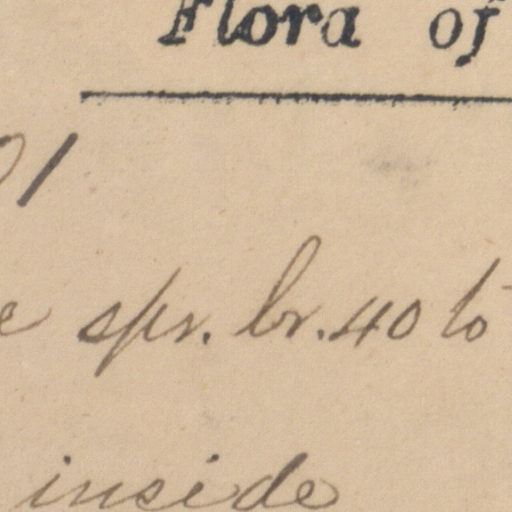 Flora of
1
spr. br. 40 to
inside